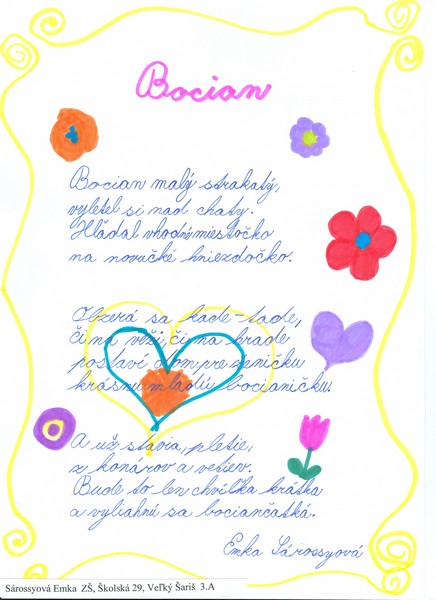 Bocian
Bocian malý strakatý,
vyletel si nad chaty.
Hľadal vhodný miestočko
na novučké hniezdočko.
Obzerá sa kade-tade,
či na veži, či na hrade
postaví dom pre ženičku
krásnu mladú bocianičku.
A už stavia, pletie,
z konárov a vetiev.
Bude to len chvíľka krátka
a vyliahnu sa bociančatká.
Emka Sárossyová
Sárossyová Emka ZŠ, Školská 29, Veľký Šariš 3.A